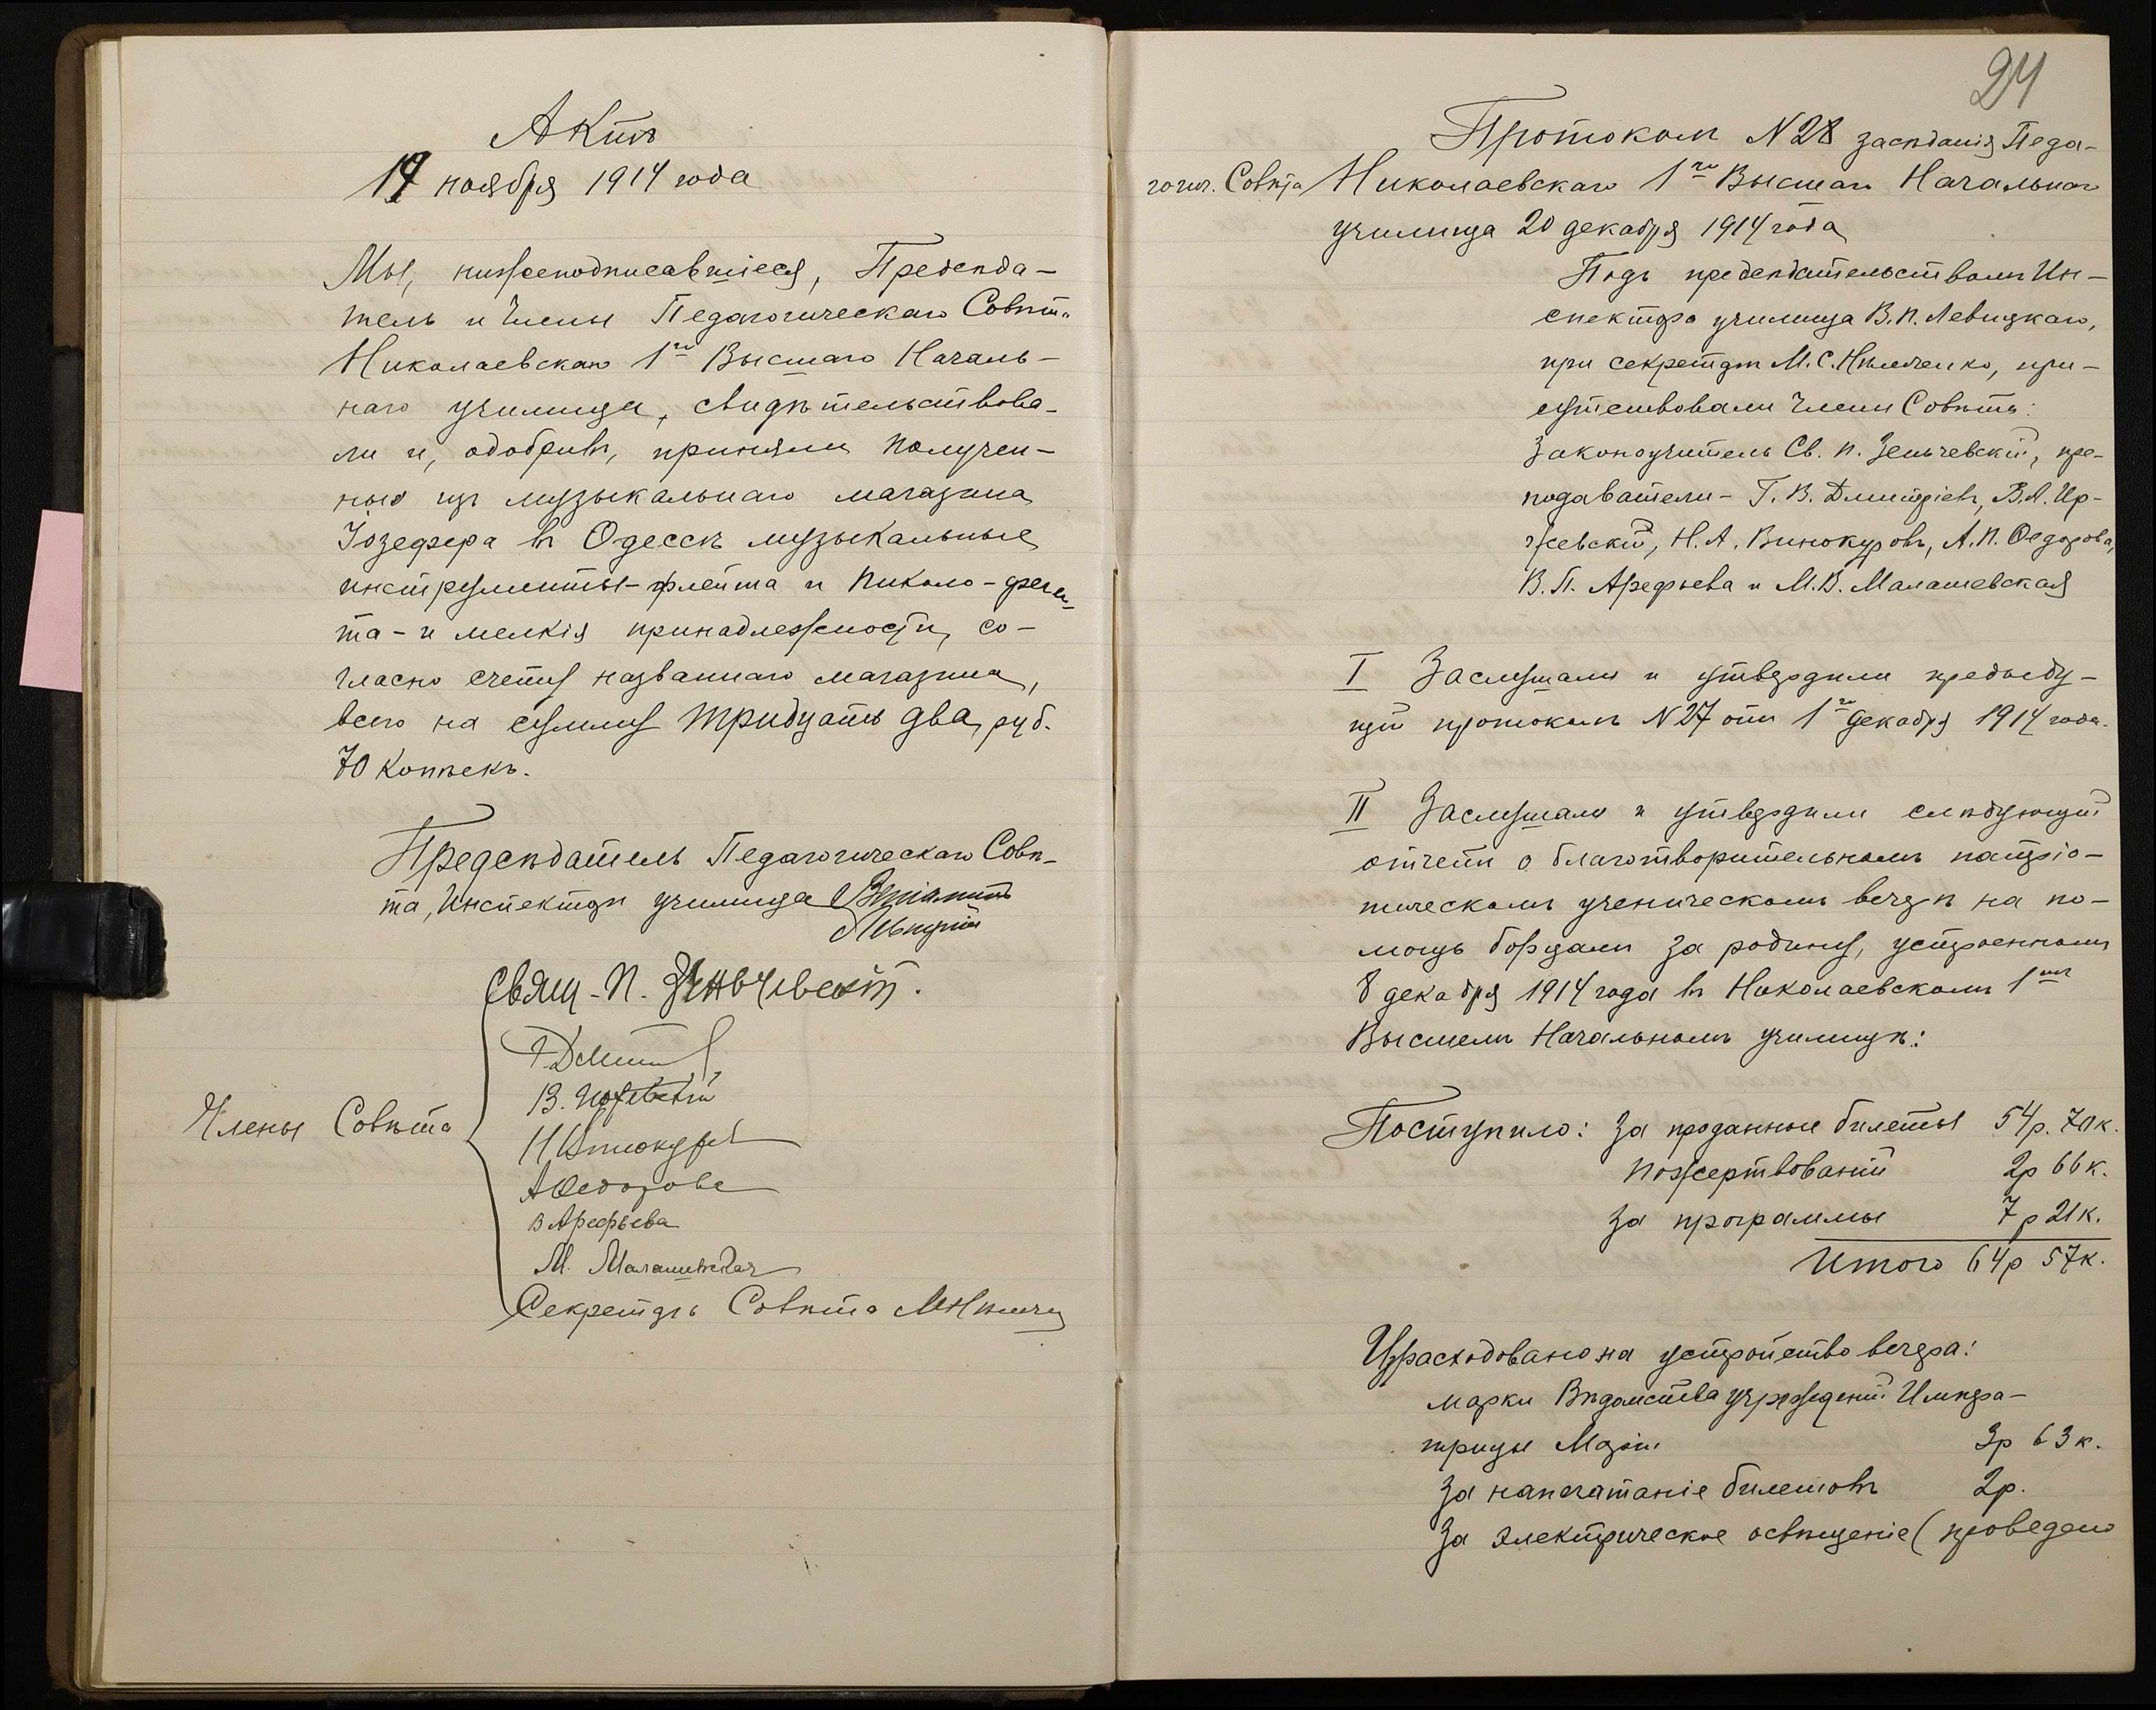 Актъ
19 ноября 1914 года
Мы, нижеподписавшіеся, Предсѣда-
тель и Члены Педагогическаго Совѣта
Николаевскаго 1го Высшаго Началь-
наго училища, свидѣтельствова-
ли и, одобривъ, приняли получен-
ные изъ музыкальнаго магазина
Іозефера въ Одессѣ музыкальные
инструменты-флейта и пиколо-флей-
та-и мелкія принадлежности, со-
гласно счету названнаго магазина,
всего на сумму тридцать два, руб.
70 копѣекъ.
Предсѣдатель Педагогическаго Совѣ-
та, Инспекторъ училища Веніаминъ
Левицкій
Члены Совѣта
Свящ. П. Зеньчевскій.
Г Дмит
В. Иржевскій
Н Винокуровъ
А Ѳедорова
В Арефьева
М. Малашевская
Секретарь Совѣта МНѣмчен
24
Протоколъ N 28 засѣданія Педа-
гогич. Совѣта Николаевскаго 1го Высшаго Начальнаго
училища 20 декабря 1914 года
Подъ предсѣдательствомъ Ин-
спектора училища В. П. Левицкаго,
при секретарѣ М. С. Нѣмченко, при-
сутствовали Члены Совѣта:
Законоучитель Св. П. Зеньчевскій, пре-
подаватели - Г. В. Дмитріевъ, В. А. Ир-
жевскій, Н. А. Винокуровъ, А. П. Ѳедорова,
В. П. Арефьева и М. В. Малашевская
I Заслушали и утвердили предыду-
щій протоколъ N 27 отъ 1го декабря 1914 года.
II Заслушали и утвердили слѣдующій
отчетъ о благотворительномъ патріо-
тическомъ ученическомъ вечерѣ на по-
мощь борцамъ за родину, устроенномъ
8 декабря 1914 года въ Николаевскомъ 1мъ
Высшемъ Начальномъ училищѣ:
Поступило: За проданные билеты 54р. 70к.
Пожертвованій 2р 66к.
За программы 7р 21к.
Итого 64р 57к.
Израсходовано на устройство вечера:
марки Вѣдомства учрежденій Импера-
трицы Маріи 3р 63к.
За напечатаніе билетовъ 2р.
За электрическое освѣщеніе (проведено